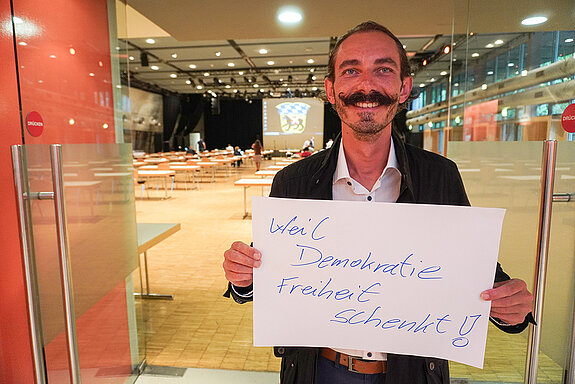 DRÜCKEN
DRÜCKEN
Weil
Demokratie
Freiheit
schenkt!